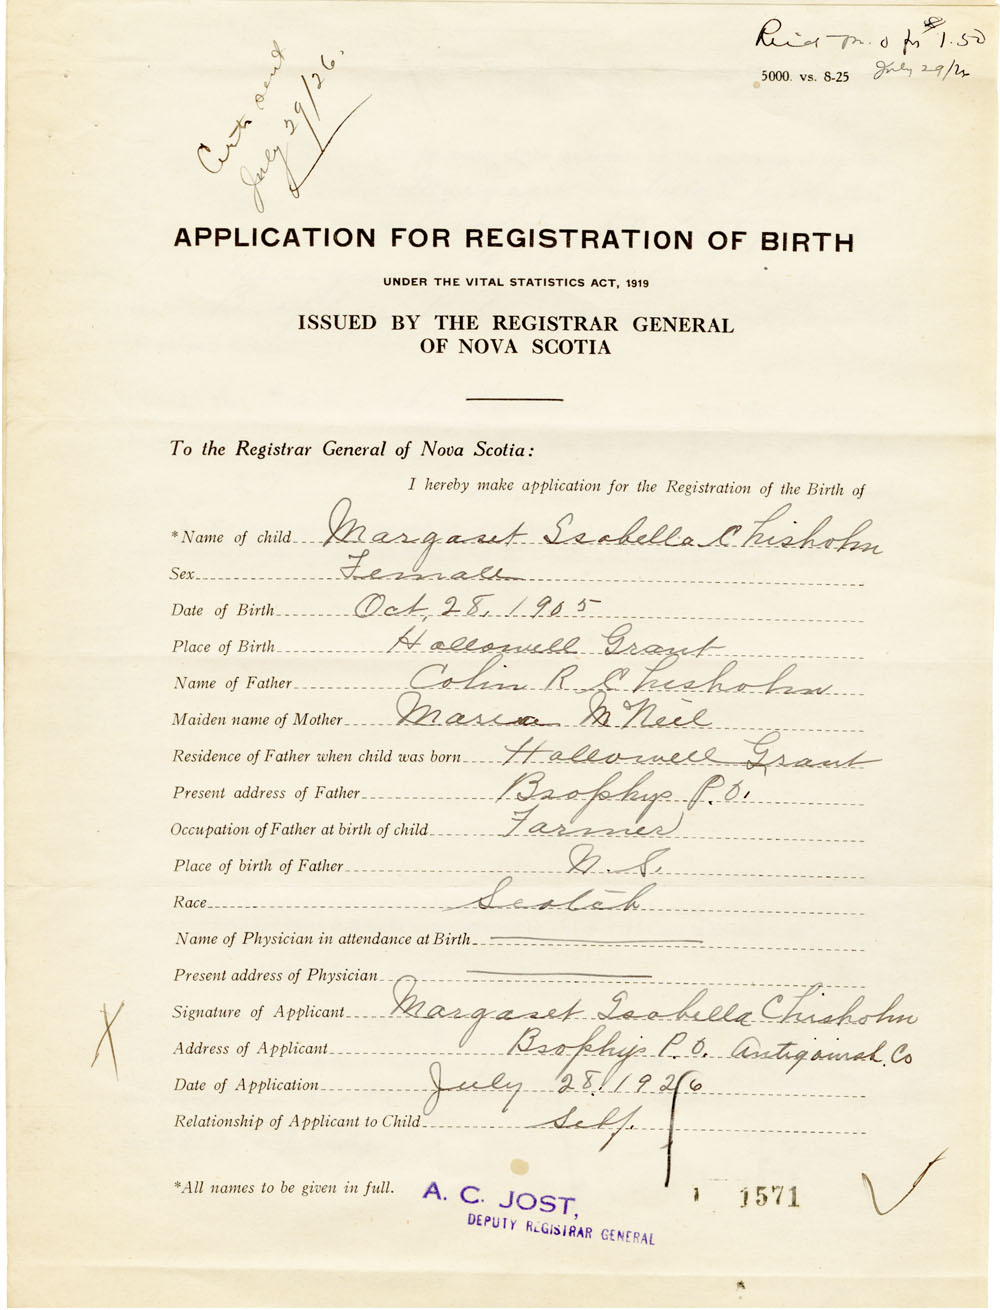 Reid m. o for $1.50
5000. vs. 8-25 July 29/26
Cert. sent
July 29/26.
APPLICATION FOR REGISTRATION OF BIRTH
UNDER THE VITAL STATISTICS ACT, 1919
ISSUED BY THE REGISTRAR GENERAL
OF NOVA SCOTIA
To the Registrar General of Nova Scotia:
I hereby make application for the Registration of the Birth of
*Name of child Margaret Isabella Chisholm
Sex Female
Date of Birth Oct, 28, 1905
Place of Birth Hallowell Grant
Name of Father Colin R Chisholm
Maiden name of Mother Maria McNeil
Residence of Father when child was born Hallowell Grant
Present address of Father Brophys P.O.
Occupation of Father at birth of child Farmer
Place of birth of Father N.S.
Race Scotch
Name of Physician in attendance at Birth
Present address of Physician
Signature of Applicant Margaret Isabella Chisholm
X
Address of Applicant Brophys P.O. Antigonish Co
Date of Application July 28, 1926
Relationship of Applicant to Child Self.
*All names to be given in full.
A. C. JOST,
DEPUTY REGISTRAR GENERAL
1 1571